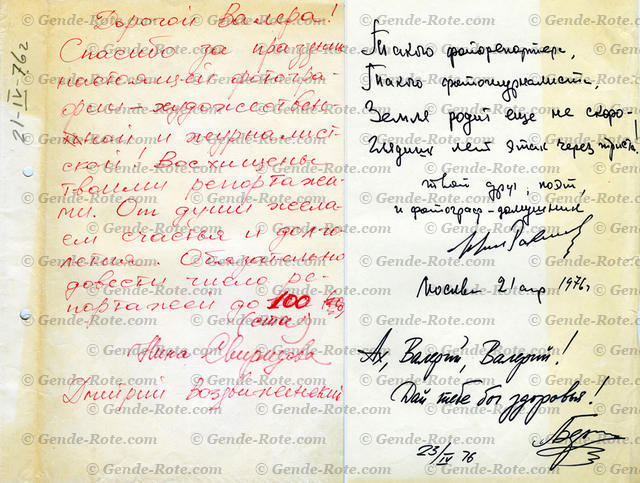 21-IV-76г
Дорогой Валера!
Спасибо за праздник
настоящей фотогра-
фии – художествен-
ной и журналист-
ской! Восхищены
твоими репортажа-
ми. От души жела-
ем счастья и долго-
летия. Обязательно
довести число ре-
портажей до 100
(ста)
Нина Свиридова
Дмитрий Воздвиженский
Такого фоторепортера,
Такого фотожурналиста,
Земля родит еще не скоро –
Глядишь лет этак через триста!
твой друг, поэт,
и фотограф-домушник
Москва 21 апр 1976г
Ах, Валерий, Валерий!
Дай тебе бог здоровья!
23/IV 76
© Gende-Rote.com